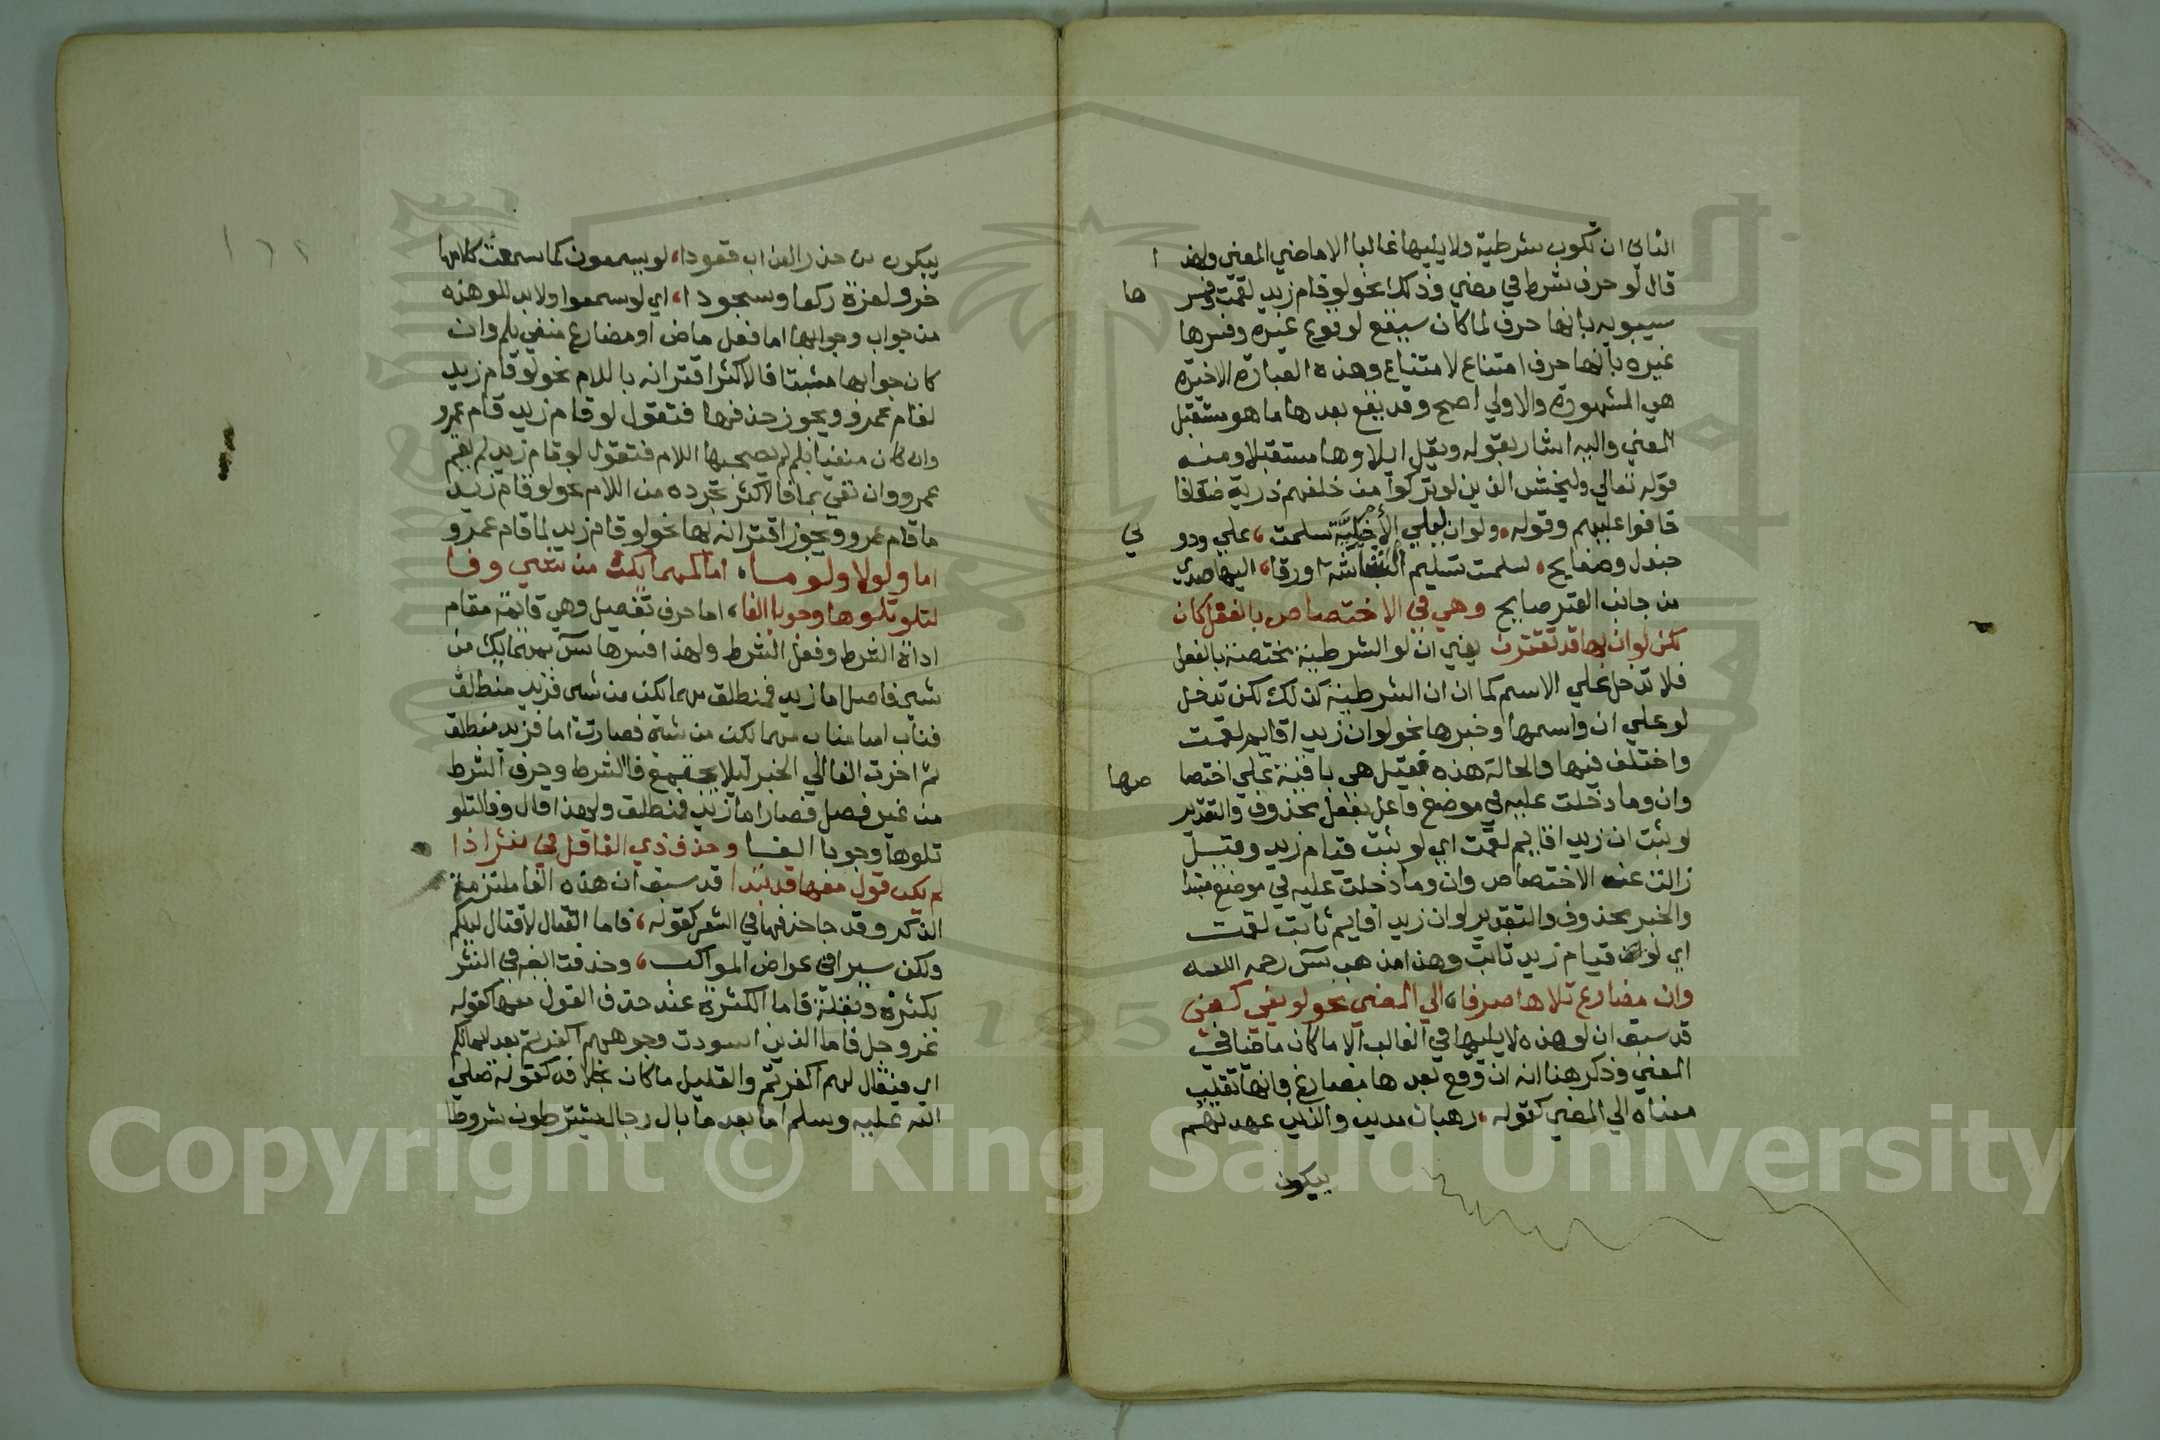 الثاني ان تكون شرطية ولا يليها غالبا الا ماضي المعني ولهذ ا
قال لو حرف شرط في مضي وذلك نحو لو قام زيد لقمت وفسر ها
سيبويه بانها حرف لما كان سيقع لوقوع غيره وفسرها
غيره بانها حرف امتناع لامتناع وهذه العبارة الاخيرة
هي المشهورة والاولي اصح وقد يقع بعدها ما هو مستقبل
المعني واليه اشار بقوله ويقل ايلاوها مستقبلا ومنه
قوله تعالي وليخش الذين لو تركوا من خلفهم ذرية ضعافا
خافوا عليهم وقوله ولو ان ليلي الأخيلية سلمت علي ودو ني
جندل وصفايح لسلمت تسليم البشاشة او زقا اليها صدي
من جانب القبر صايح وهي في الاختصاص بالفعل كان
لكن لو ان بها قد تقترن يعني ان لو الشرطية مختصة بالفعل
فلا تدخل علي الاسم كما ان ان الشرطية كذلك لكن تدخل
لو علي ان واسمها وخبرها نحو لو ان زيدا قايم لقمت
واختلف فيها والحالة هذه فقيل هي باقية علي اختصا صها
وان وما دخلت عليه في موضع فاعل بفعل محذوف والتقدير
لو ثبت ان زيدا قايم لقمت اي لو ثبت قيام زيد وقيل
زالت عن الاختصاص وان وما دخلت عليه في موضع مبتدا
والخبر محذوف والتقدير لو ان زيدا قايم ثابت لقمت
اي لو قيام زيد ثابت وهذا مذهب س رحمه الله
وان مضارع تلاها صرفا الي المضي نحو لو يفي كفي
قد سبق ان لو هذه لا يليها في الغالب الا ما كان ماضيا في
المعني وذكر هنا انه ان وقع بعدها مضارع فانها تقلب
معناه الي المضي كقوله رهبان مدين والذين عهدتهم
يبكون
يبكون من حذر العذاب قعودا لو يسمعون كما سمعت كلامها
خروا لعزة ركعا وسجودا اي لو سمعوا ولا بد للو هذه
من جواب وجوابها اما فعل ماض او مضارع منفي بلم وان
كان جوابها مثبتا فالاكثر اقترانه باللام نحو لو قام زيد
لقام عمرو ويجوز حذفها فتقول لو قام زيد قام عمرو
وان كان منفيا بلم لم يصحبها اللام فتقول لو قام زيد لم يقم
عمرو وان نفي بما فالاكثر تجرده من اللام نحو لو قام زيد
ما قام عمرو ويجوز اقترانه بها نحو لو قام زيد لما قام عمرو
اما ولولا ولوما اما كمهما يك من شي وفا
لتلو تلوها وجوبا الفا اما حرف تفصيل وهي قايمة مقام
اداة الشرط وفعل الشرط ولهذا فسرها س بمهما يك من
شي فاصل اما زيد فمنطلق مهما يكن من شي فزيد منطلق
فناب اما مناب مهما يكن من شي فصارت اما فزيد منطلق
ثم اخرت الفا الي الخبر ليلا يجتمع فا الشرط وحرف الشرط
من غير فصل فصار اما زيد فمنطلق ولهذا قال وفا لتلو
تلوها وجوبا الفا وحذف ذي الفا قل في نثر اذا
لم يكن قول معها قد نبذا قد سبق ان هذه الفا ملتزمة
الذكر وقد جا حذفها في الشعر كقوله فاما القتال لا قتال لديكم
ولكن سيرا في عراض المواكب وحذفت ايضا في النثر
بكثرة وبقلة فاما الكثرة عند حذف القول معها كقوله
عز وجل فاما الذين اسودت وجوههم اكفرتم بعد ايمانكم
اي فيقال لهم اكفرتم والقليل ما كان بخلافه كقوله صلي
الله عليه وسلم اما بعد ما بال رجال يشترطون شروطا
Copyright © King Saud University
195